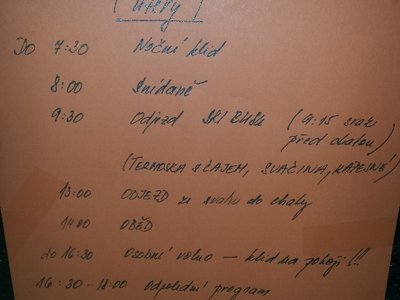 ( ÚTERÝ )
DO 7:30 Noční klid
8:00 Snídaně
9:30 Odjezd SKI BUSU (9:15 sraz
před chatou)
(TERMOSKA S ČAJEM, SVAČINA, KAPESNÉ)
13:00 ODJEZD ze svahu do chaty
14:00 OBĚD
do 16:30 Osobní volno – klid na pokoji !!!
16:30 - 18:00 odpolední program